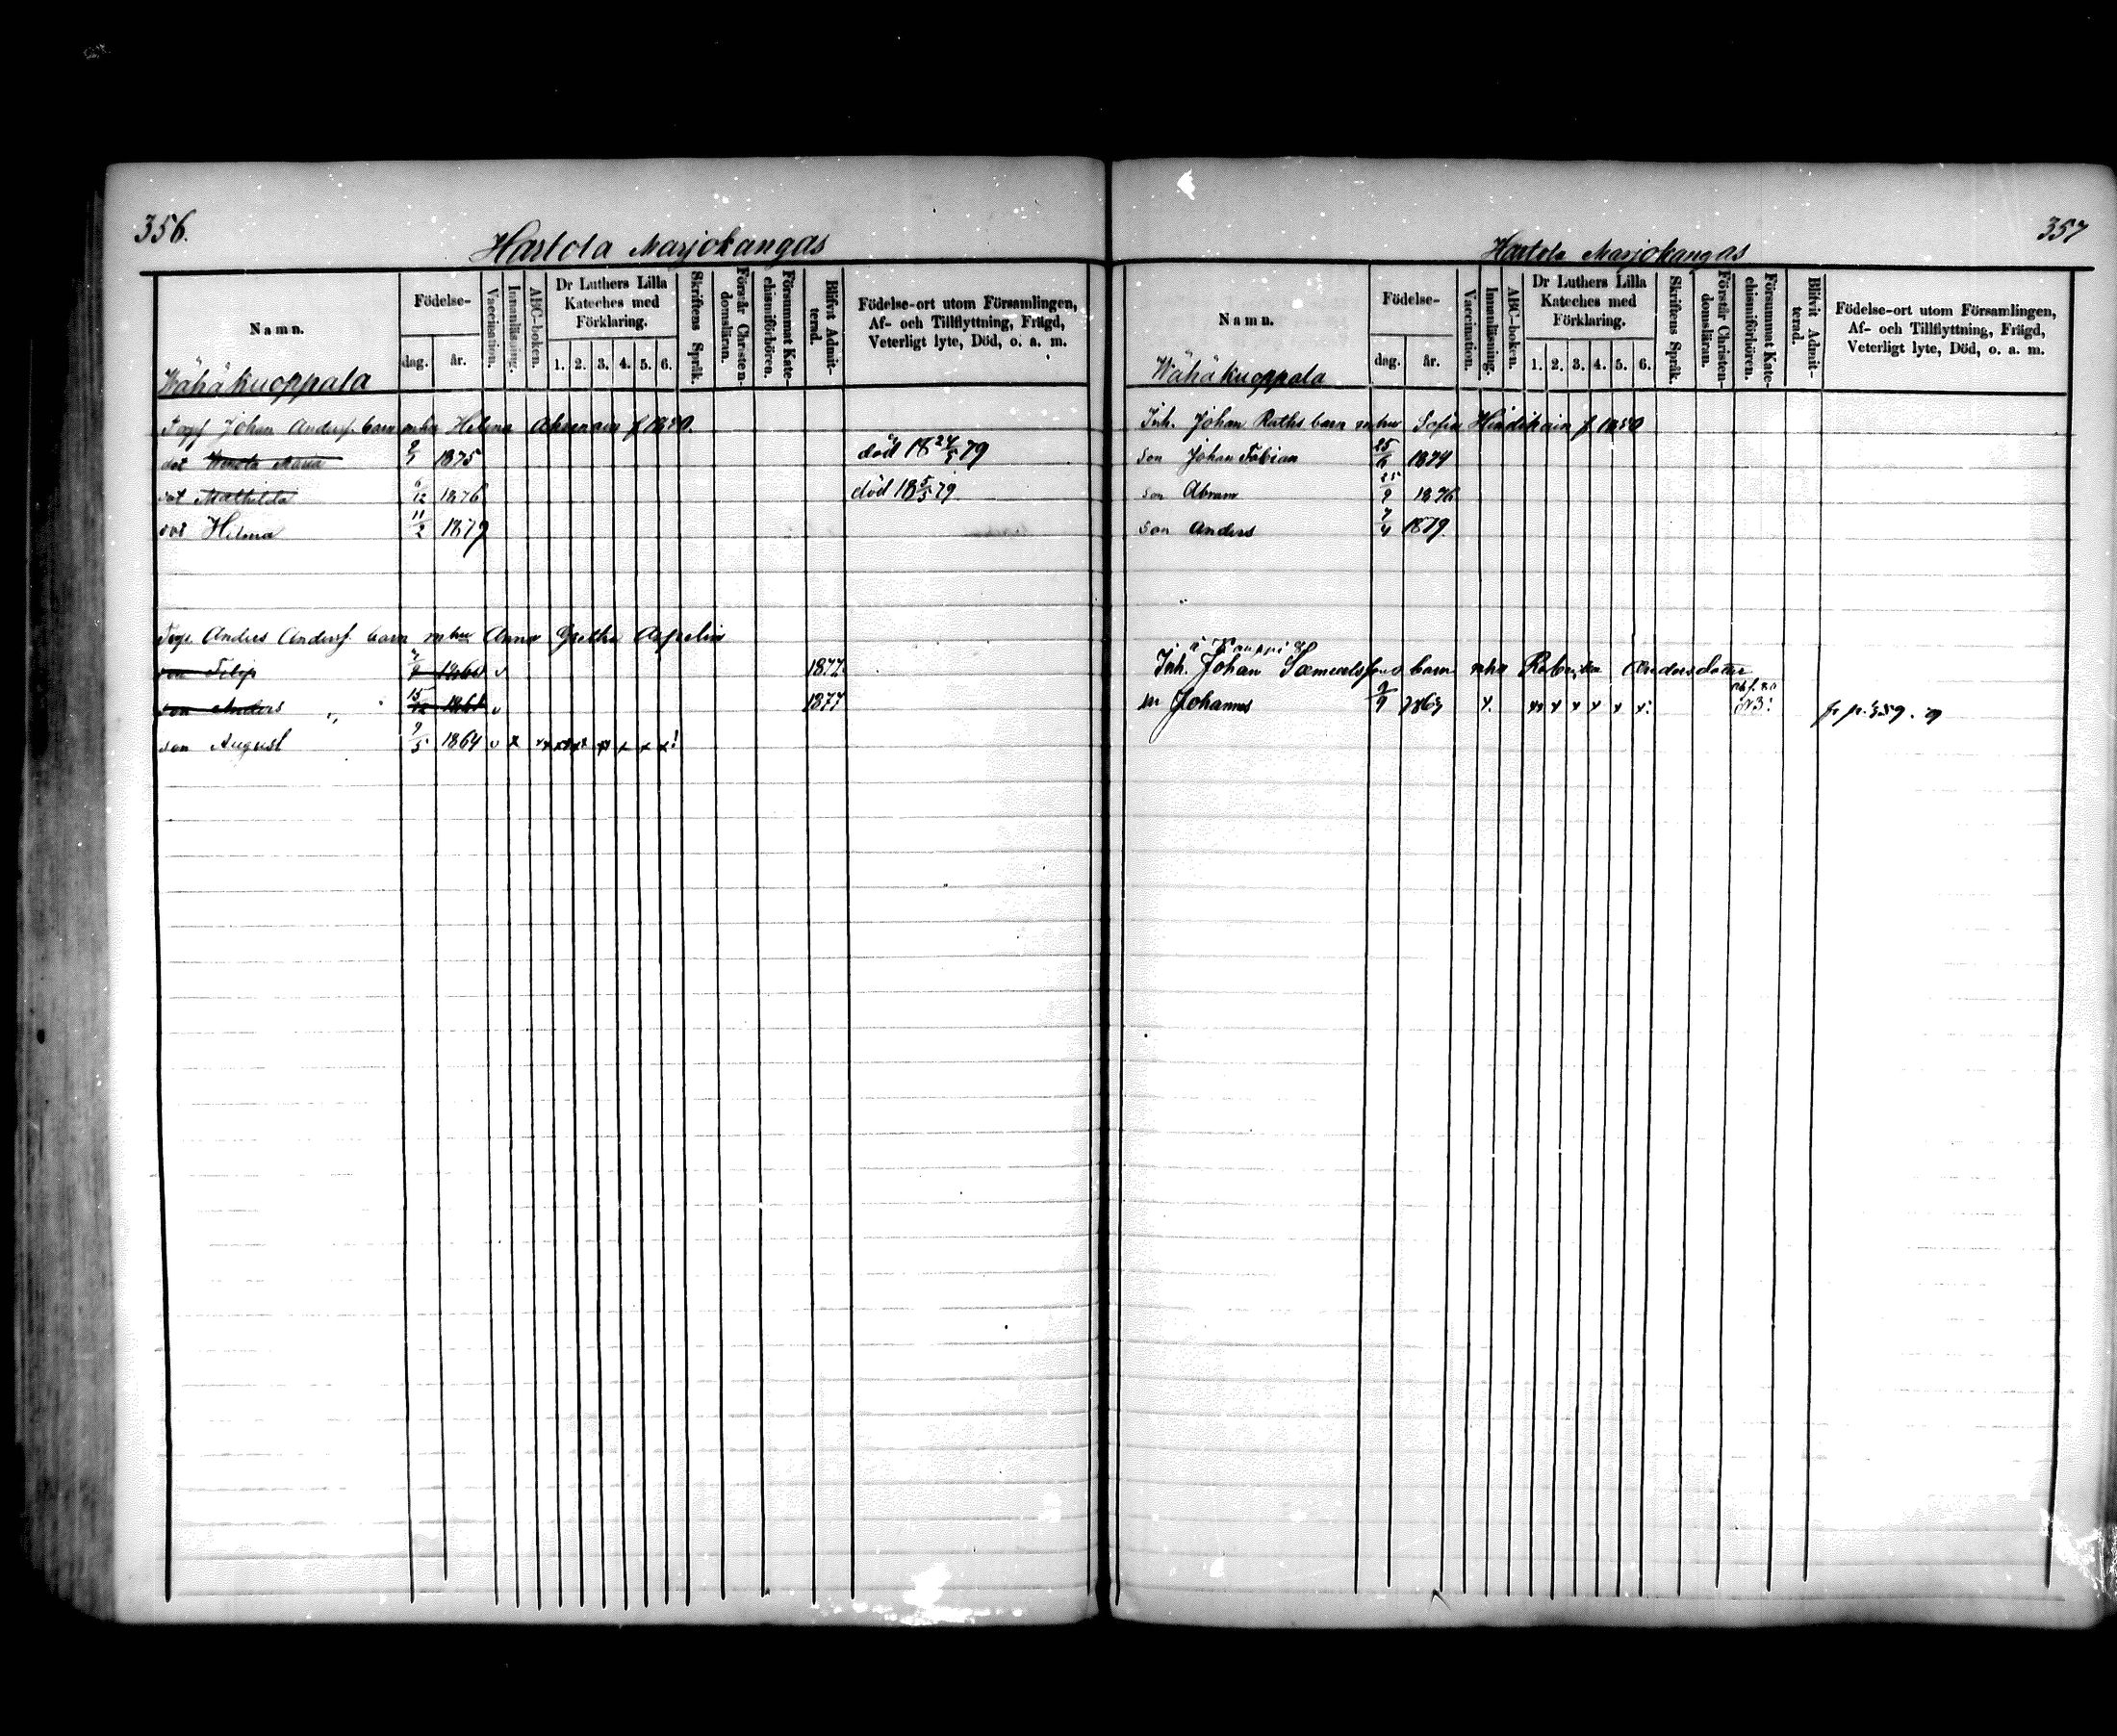 356.
Hartola Marjokangas
Namn.
Födelse-
dag. år.
Vaccination.
Innanläsning.
ABC-boken.
Dr Luthers Lilla
Kateches med
Förklaring.
1. 2. 3. 4. 5. 6.
Skriftens Språk.
Förstår Christen-
domsläran.
Försummat Kate-
chismiförhören.
Blifvit Admit-
terad.
Födelse-ort utom Församlingen,
Af- och Tillflyttning, Frägd,
Veterligt lyte, Död, o. a. m.
Wähäkuoppala
Johan Andersf. barn m hu Helena f 1850.
dot Maria 1875 död 18 24/5 79
dot Mathilda 6/12 1876 död 18 5/5 79
dot Hilma 11/2 1879
Torp. Anders Andersf. barn m hu Anna Gretha
son Filip v 1877
son Anders 15/12 1861 v 1877
son August 9/5 1864 v x x x x x!
357
Hartola Marjokangas
Namn.
Födelse-
dag. år.
Vaccination.
Innanläsning.
ABC-boken.
Dr Luthers Lilla
Kateches med
Förklaring.
1. 2. 3. 4. 5. 6.
Skriftens Språk.
Förstår Christen-
domsläran.
Försummat Kate-
chismiförhören.
Blifvit Admit-
terad.
Födelse-ort utom Församlingen,
Af- och Tillflyttning, Frägd,
Veterligt lyte, Död, o. a. m.
Wähäkuoppala
Inh. Johan Ruths barn m hu Sofia f 1850
son Johan Fabian 25/6 1874
son Abram 25/9 1876
son Anders 7/4 1879.
Inh. Johan Samuelsson barn m hu Andersdotter
Johannes 9/9 x x x x x fr p. 359.